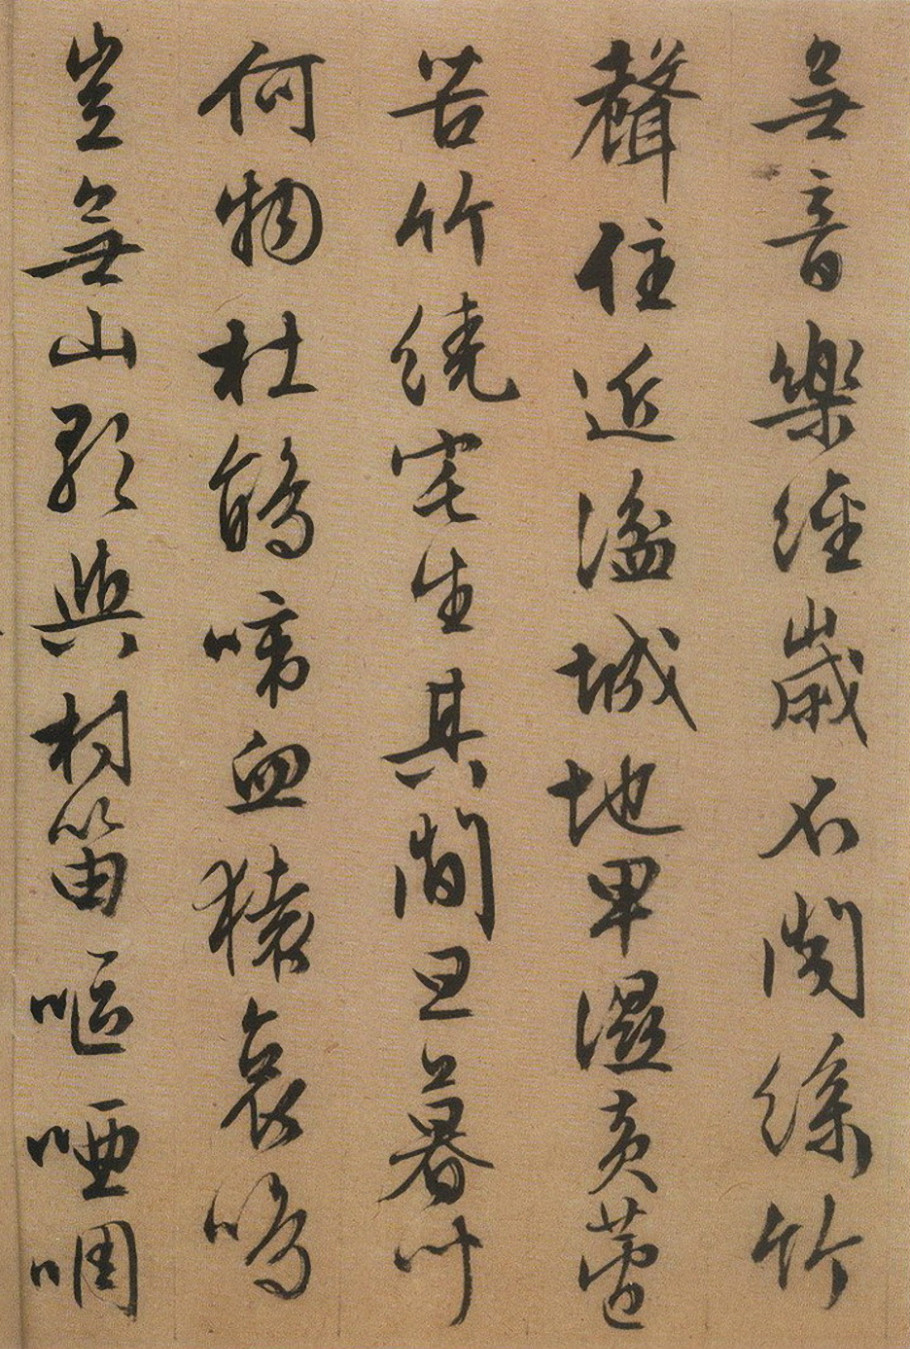 無音樂經歲不聞絲竹
聲住近湓城地卑濕黃蘆
苦竹繞宅生其間旦暮叫
何物杜鵑啼血猿哀鳴
豈無山歌與村笛嘔啞啁